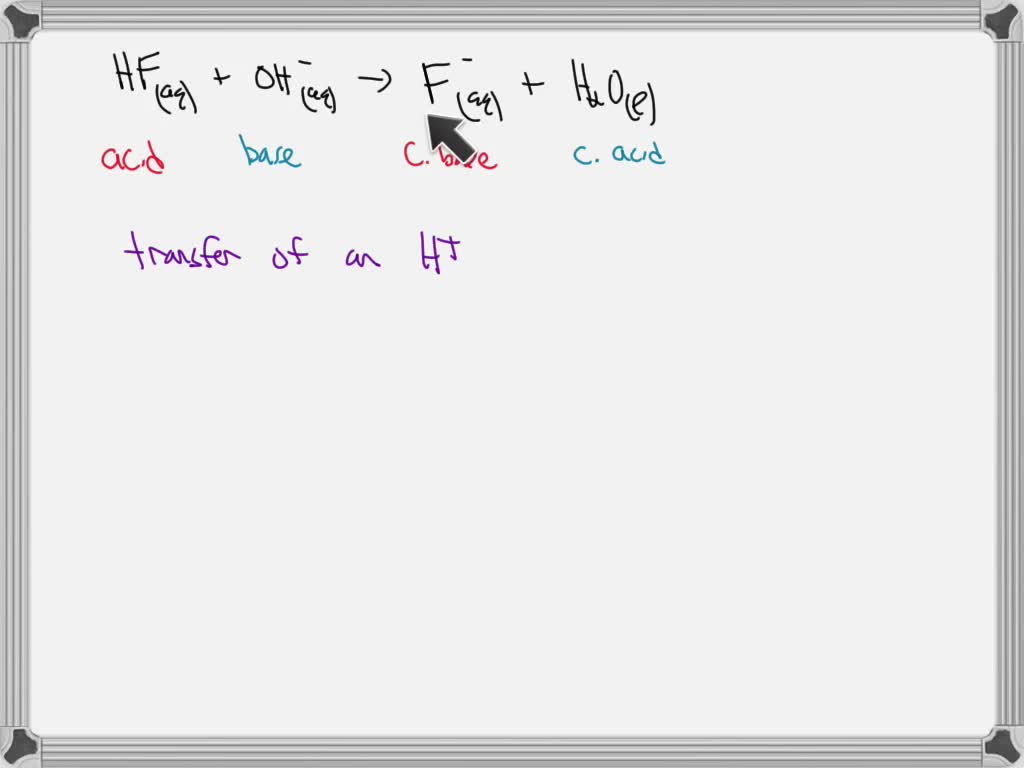 HF(aq) + OH⁻(aq) → F⁻(aq) + H₂O(l)
acid base C. base C. acid
transfer of an H⁺